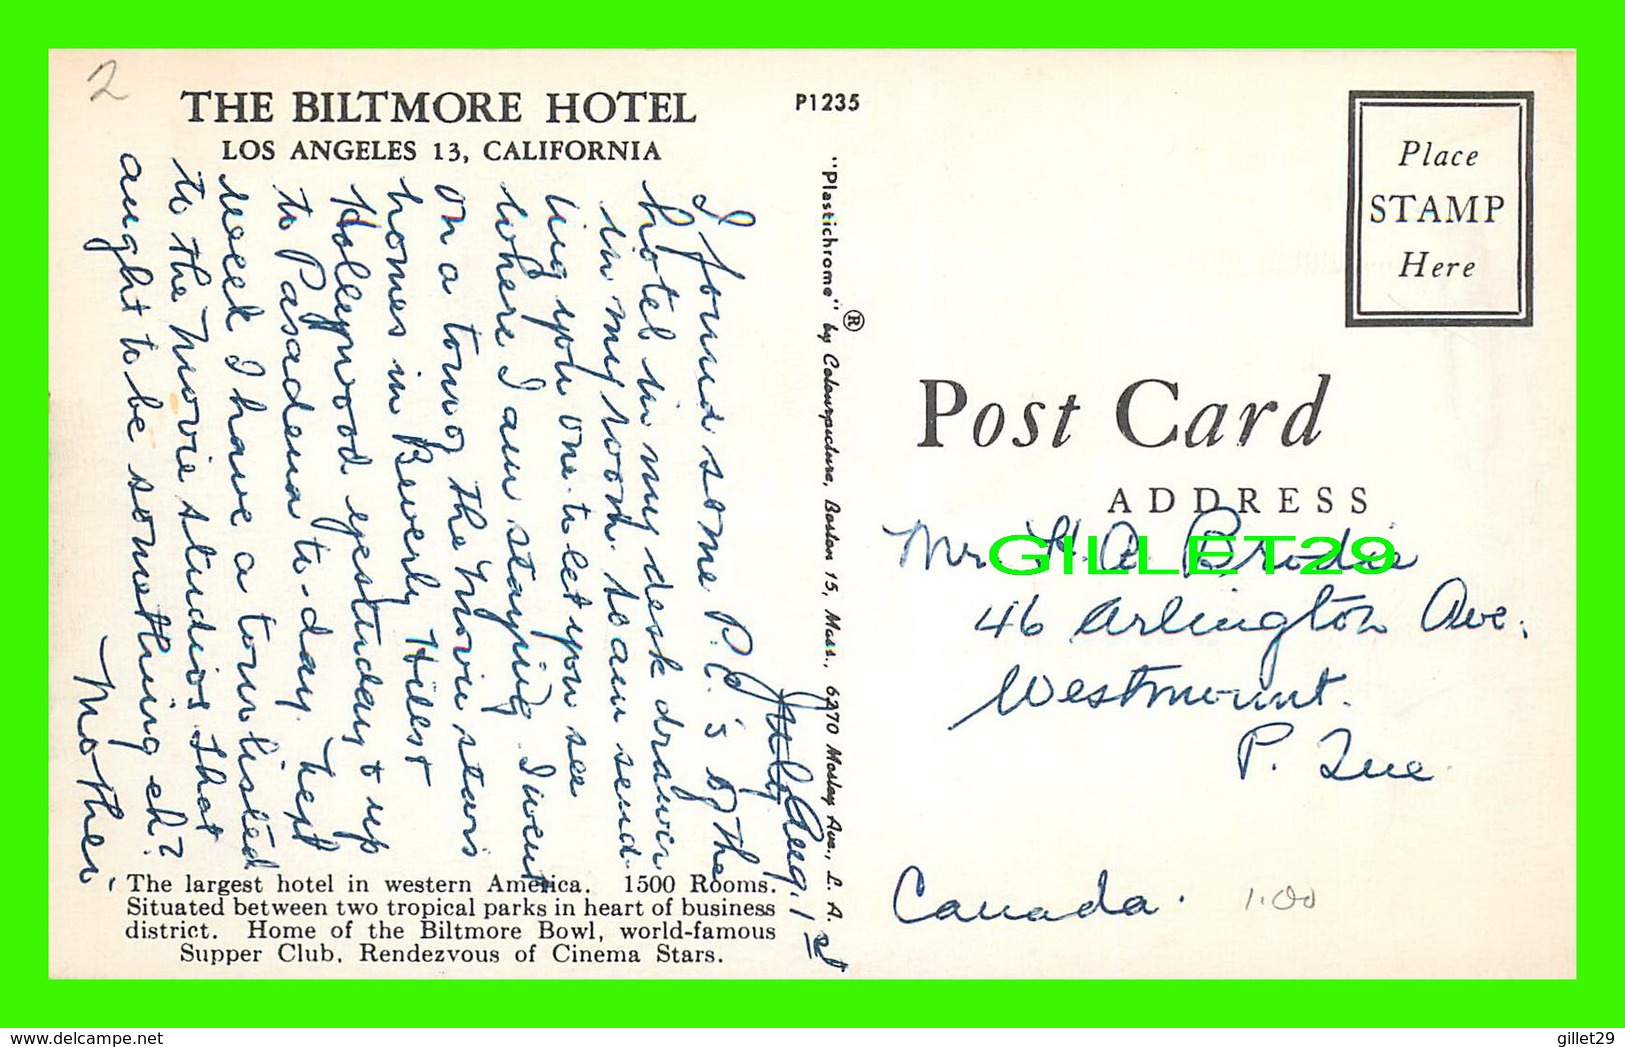 2
THE BILTMORE HOTEL
LOS ANGELES 13, CALIFORNIA
P1235
Place
STAMP
Here
"Plastichrome" ® by Colourpicture, Boston 15, Mass., 6270 Mosley Ave., L. A.
Post Card
ADDRESS
July Aug. 1st
I found some P.C.'s of the
hotel in my desk drawer
in my room. So am send-
ing you one to let you see
where I am staying. I went
on a tour of the movie stars
homes in Beverly Hills &
Hollywood yesterday & up
to Pasadena to-day. Next
week I have a tour listed
to the movie studios that
aught to be something eh?
Mother.
Mr. H. A. Brodie
46 Arlington Ave.
Westmount.
P. Que.
Canada.
1.00
GILLET29
The largest hotel in western America. 1500 Rooms.
Situated between two tropical parks in heart of business
district. Home of the Biltmore Bowl, world-famous
Supper Club, Rendezvous of Cinema Stars.
http://www.delcampe.net
gillet29